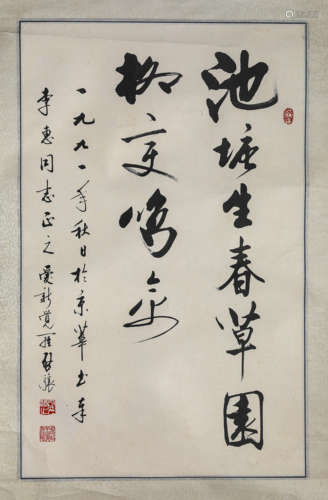 池塘生春草園
柳变鸣禽
一九九一年秋日於京華书奉
李惠同志正之 爱新觉羅啓骧